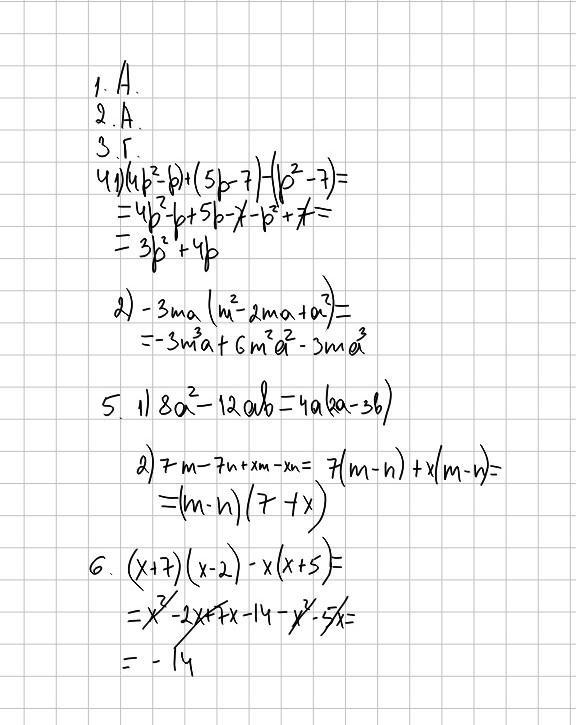 1. А.
2. А.
3. Г.
4 1) (4p²-p)+(5p-7)-(p²-7)=
=4p²-p+5p-7-p²+7=
= 3p²+4p
2) -3ma(m²-2ma+a²)=
=-3m³a+6m²a²-3ma³
5. 1) 8a²-12ab=4a(2a-3b)
2) 7m-7n+xm-xn= 7(m-n)+x(m-n)=
=(m-n)(7+x)
6. (x+7)(x-2)-x(x+5)=
=x²-2x+7x-14-x²-5x=
= -14